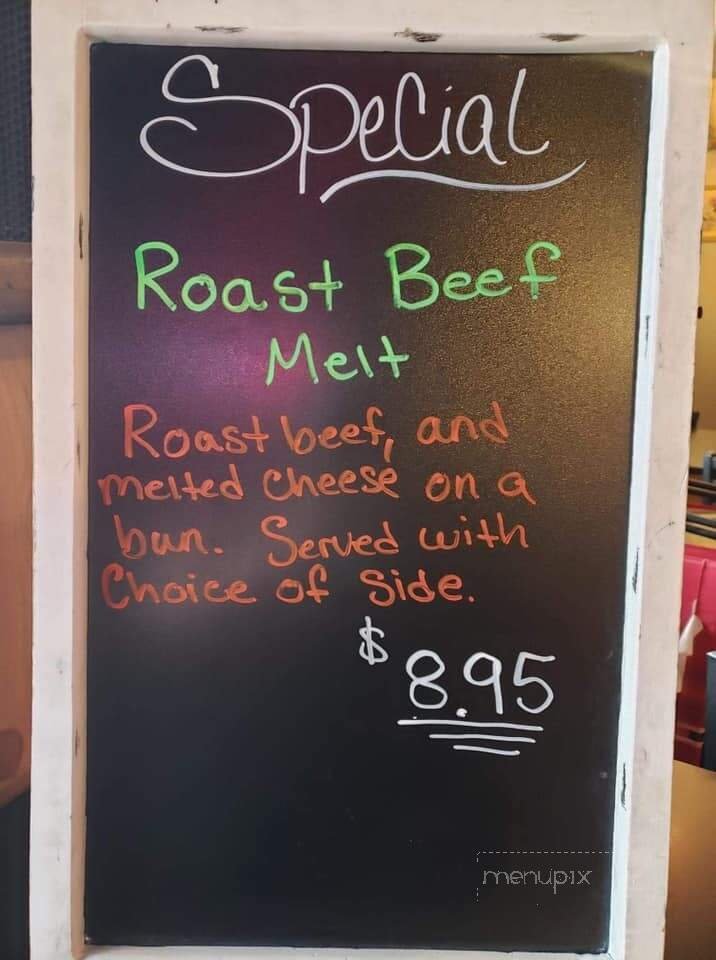 Special
Roast Beef
Melt
Roast beef, and
melted cheese on a
bun. Served with
Choice of Side.
$8.95
menupix